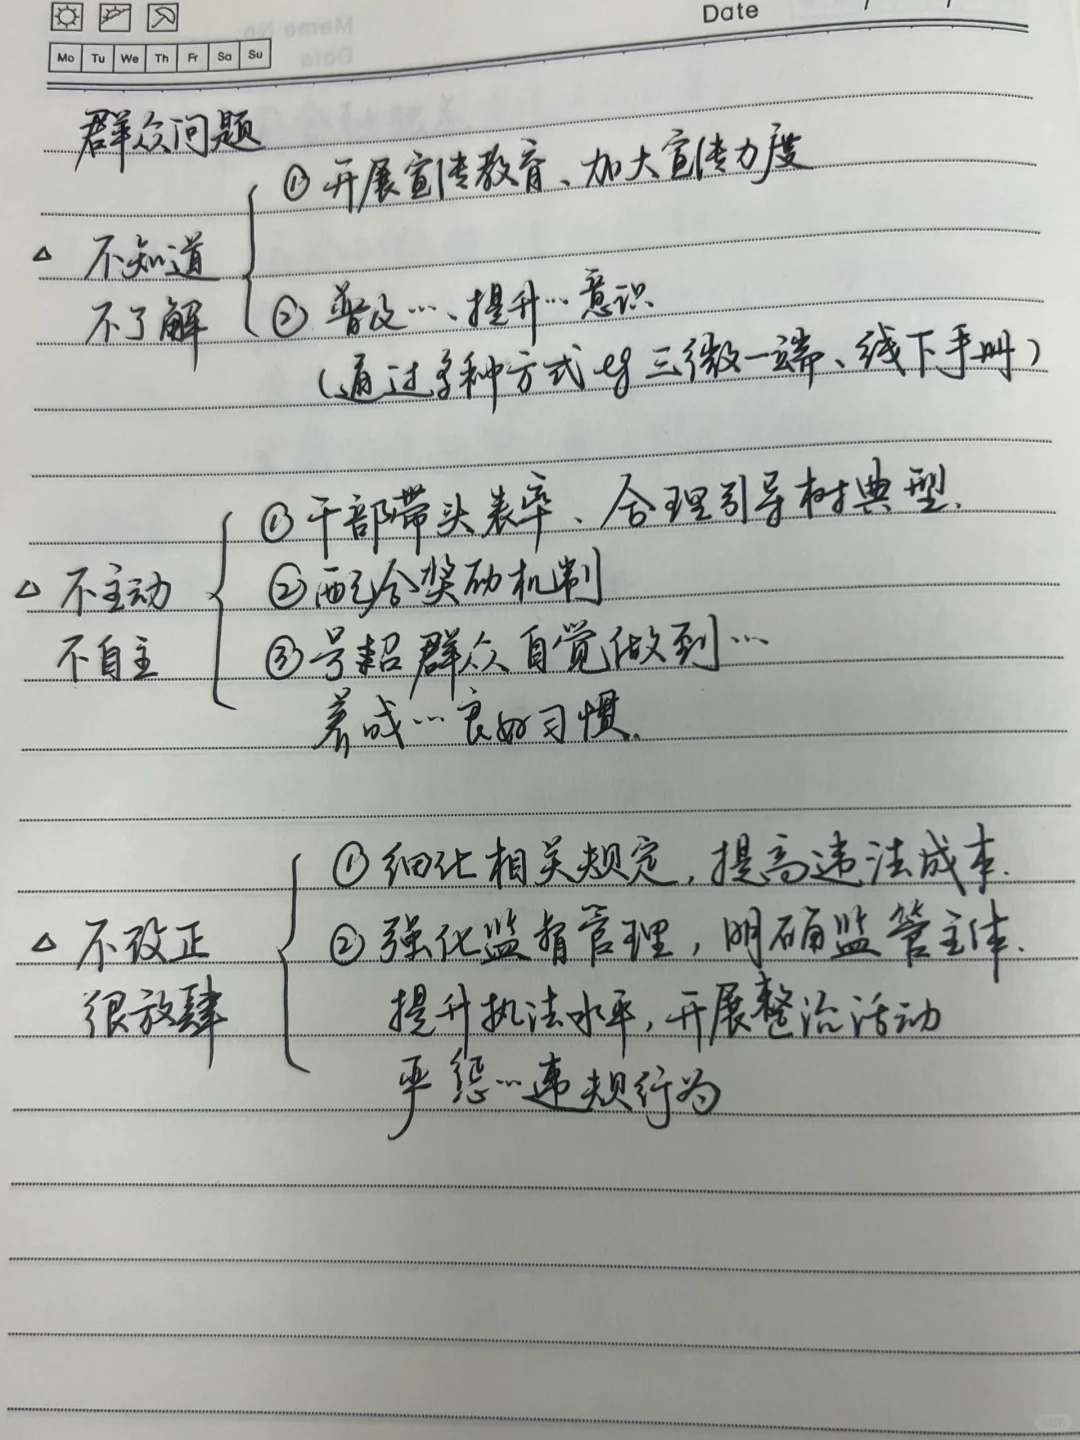 Date
Mo Tu We Th Fr Sa Su
群众问题
① 开展宣传教育、加大宣传力度
△ 不知道
不了解
② 普及…、提升…意识
(通过多种方式 eg 三微一端、线下手册)
① 干部带头表率、合理引导树典型.
△ 不主动
② 配合奖励机制
不自主
③ 号召群众自觉做到…
养成…良好习惯.
① 细化相关规定,提高违法成本.
△ 不改正
② 强化监督管理,明确监管主体.
很放肆
提升执法水平,开展整治活动
严惩…违规行为